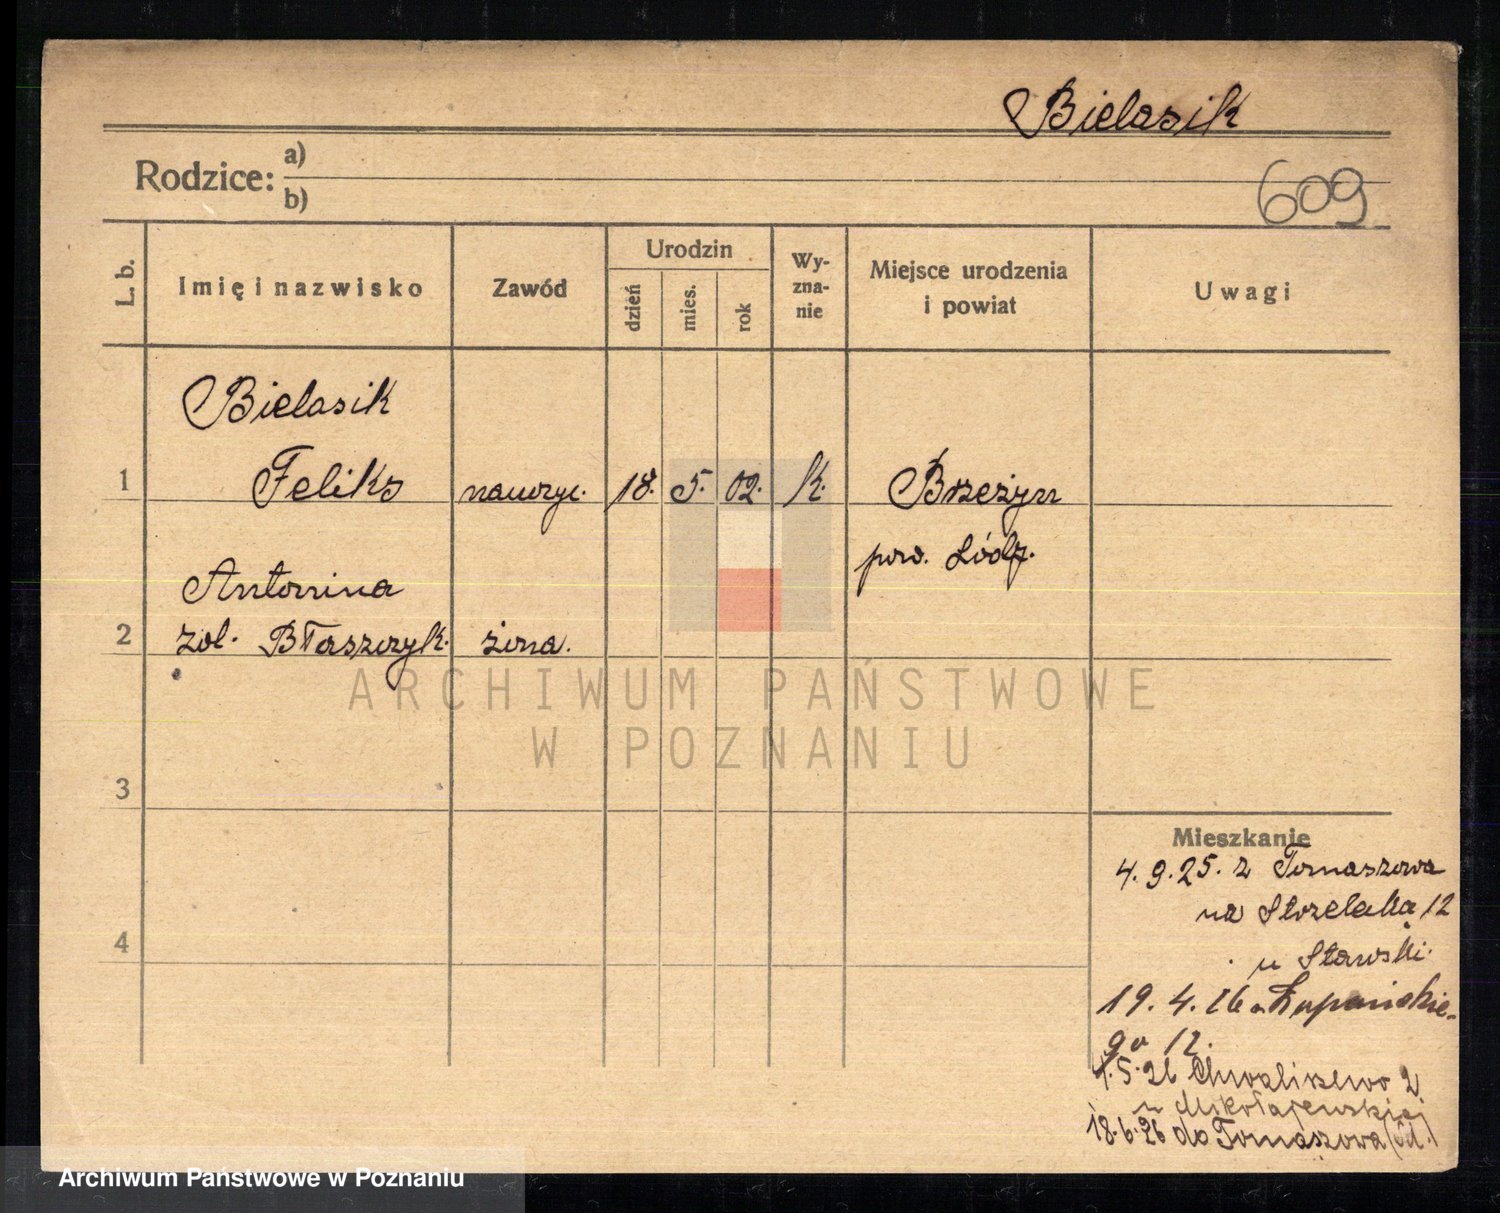 Bielasik
Rodzice:
a)
b)
609
L. b.
Imię i nazwisko
Zawód
Urodzin
dzień
mies.
rok
Wy-
zna-
nie
Miejsce urodzenia
i powiat
Uwagi
Bielasik
1 Feliks nauczyc. 18. 5. 02. k. Brzeziny
pow. Łódź.
Antonina
2 zol. Błaszczyk. żona.
ARCHIWUM PAŃSTWOWE
W POZNANIU
3
4
Mieszkanie
4.9.25. z Tomaszowa
na Strzelecką 12
u Stawski.
19.4.26 Łupańskie-
go 12.
1.5.26 Chwaliszewo 2
u Mikołajewskiej
18.6.26 do Tomaszowa
Archiwum Państwowe w Poznaniu